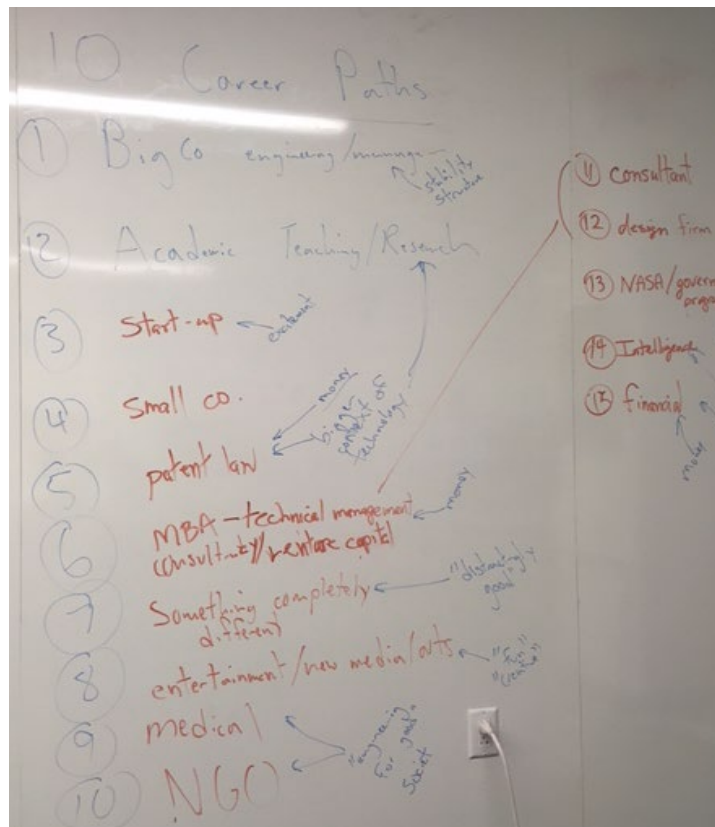 10 Career Paths
① BigCo engineering/manage
stability
structure
② Academic Teaching/Research
③ Start-up
excitement
④ Small co.
money
bigger
context of
technology
⑤ patent law
⑥ MBA - technical management
consultancy/venture capital
money
⑦ Something completely
different
good"
⑧ entertainment/new media/arts
"fun"
"creative"
⑨ medical
"engineering
for good"
⑩ NGO
⑪ consultant
⑫ design firm
⑬ NASA/govern
⑭ Intelligence
⑮ financial
money